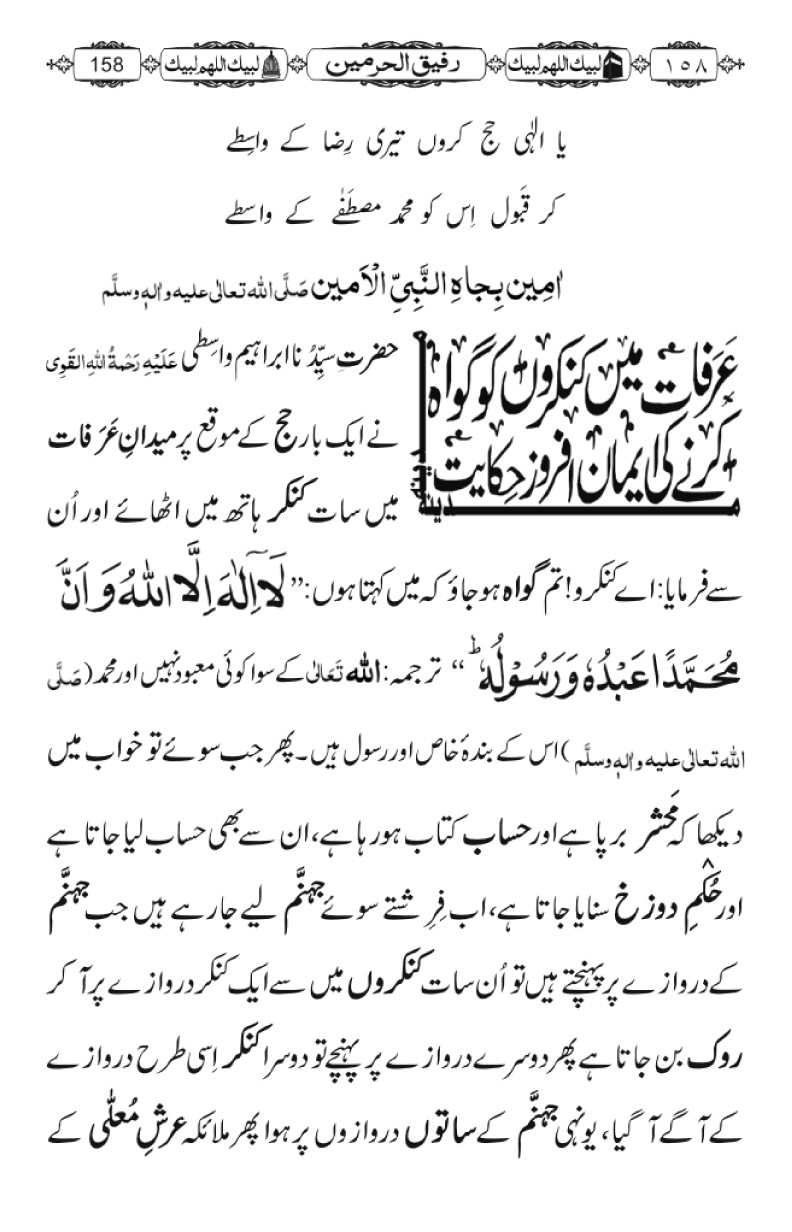 ١٥٨ لبیك اللهم لبیك رفیق الحرمین لبیك اللهم لبیك 158
یا الٰہی حج کروں تیری رِضا کے واسِطے
کر قَبول اِس کو محمد مصطَفٰے کے واسطے
اٰمین بِجاہِ النَّبِیِّ الْاَمین صَلَّی اللہ تعالٰی علیہ واٰلہٖ وسلَّم
عَرَفات میں کنکروں کو گواہ
کرنے کی ایمان افروز حِکایت
مدینہ
حضرتِ سیِّدُنا ابراہیم واسِطی عَلَیْہِ رَحْمَۃُ اللہِ الْقَوِی
نے ایک بار حج کے موقع پر میدانِ عَرَفات
میں سات کنکر ہاتھ میں اٹھائے اور اُن
سے فرمایا: اے کنکرو! تم گواہ ہوجاؤ کہ میں کہتا ہوں: ’’ لَآ اِلٰہَ اِلَّا اللہُ وَ اَنَّ
مُحَمَّدًا عَبْدُہٗ وَ رَسُوْلُہٗ ؕ ‘‘ ترجمہ: اللہ تَعَالٰی کے سوا کوئی معبود نہیں اور محمد (صَلَّی
اللہ تعالٰی علیہ واٰلہٖ وسلَّم) اس کے بندۂ خاص اور رسول ہیں۔ پھر جب سوئے تو خواب میں
دیکھا کہ مَحشر برپا ہے اور حساب کتاب ہو رہا ہے، ان سے بھی حساب لیا جاتا ہے
اور حُکمِ دوزخ سنایا جاتا ہے، اب فِرِشتے سوئے جہنَّم لیے جارہے ہیں جب جہنَّم
کے دروازے پر پہنچتے ہیں تو اُن سات کنکروں میں سے ایک کنکر دروازے پر آ کر
روک بن جاتا ہے پھر دوسرے دروازے پر پہنچے تو دوسرا کنکر اِسی طرح دروازے
کے آگے آ گیا، یونہی جہنَّم کے ساتوں دروازوں پر ہوا پھر ملائکہ عرشِ مُعلّٰی کے